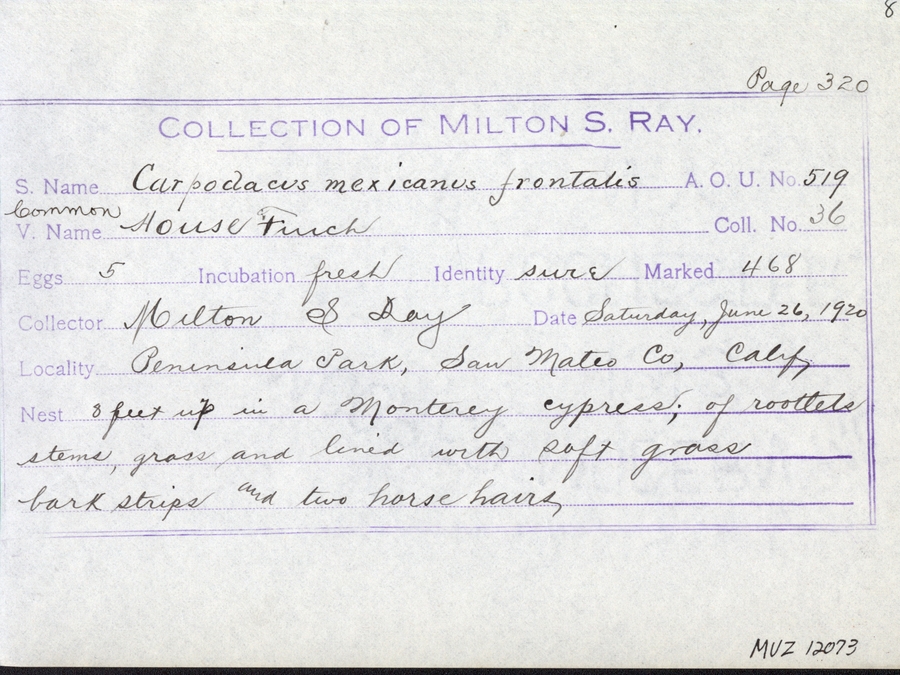 8
Page 320
COLLECTION OF MILTON S. RAY.
S. Name Carpodacus mexicanus frontalis A. O. U. No. 519
Common
V. Name House Finch Coll. No. 36
Eggs 5 Incubation fresh Identity sure Marked 468
Collector Milton S Ray Date Saturday, June 26, 1920
Locality Peninsula Park, San Mateo Co, Calif,
Nest 8 feet up in a Monterey cypress; of rootlets
stems, grass and lined with soft grass
bark strips and two horse hairs,
MVZ 12073